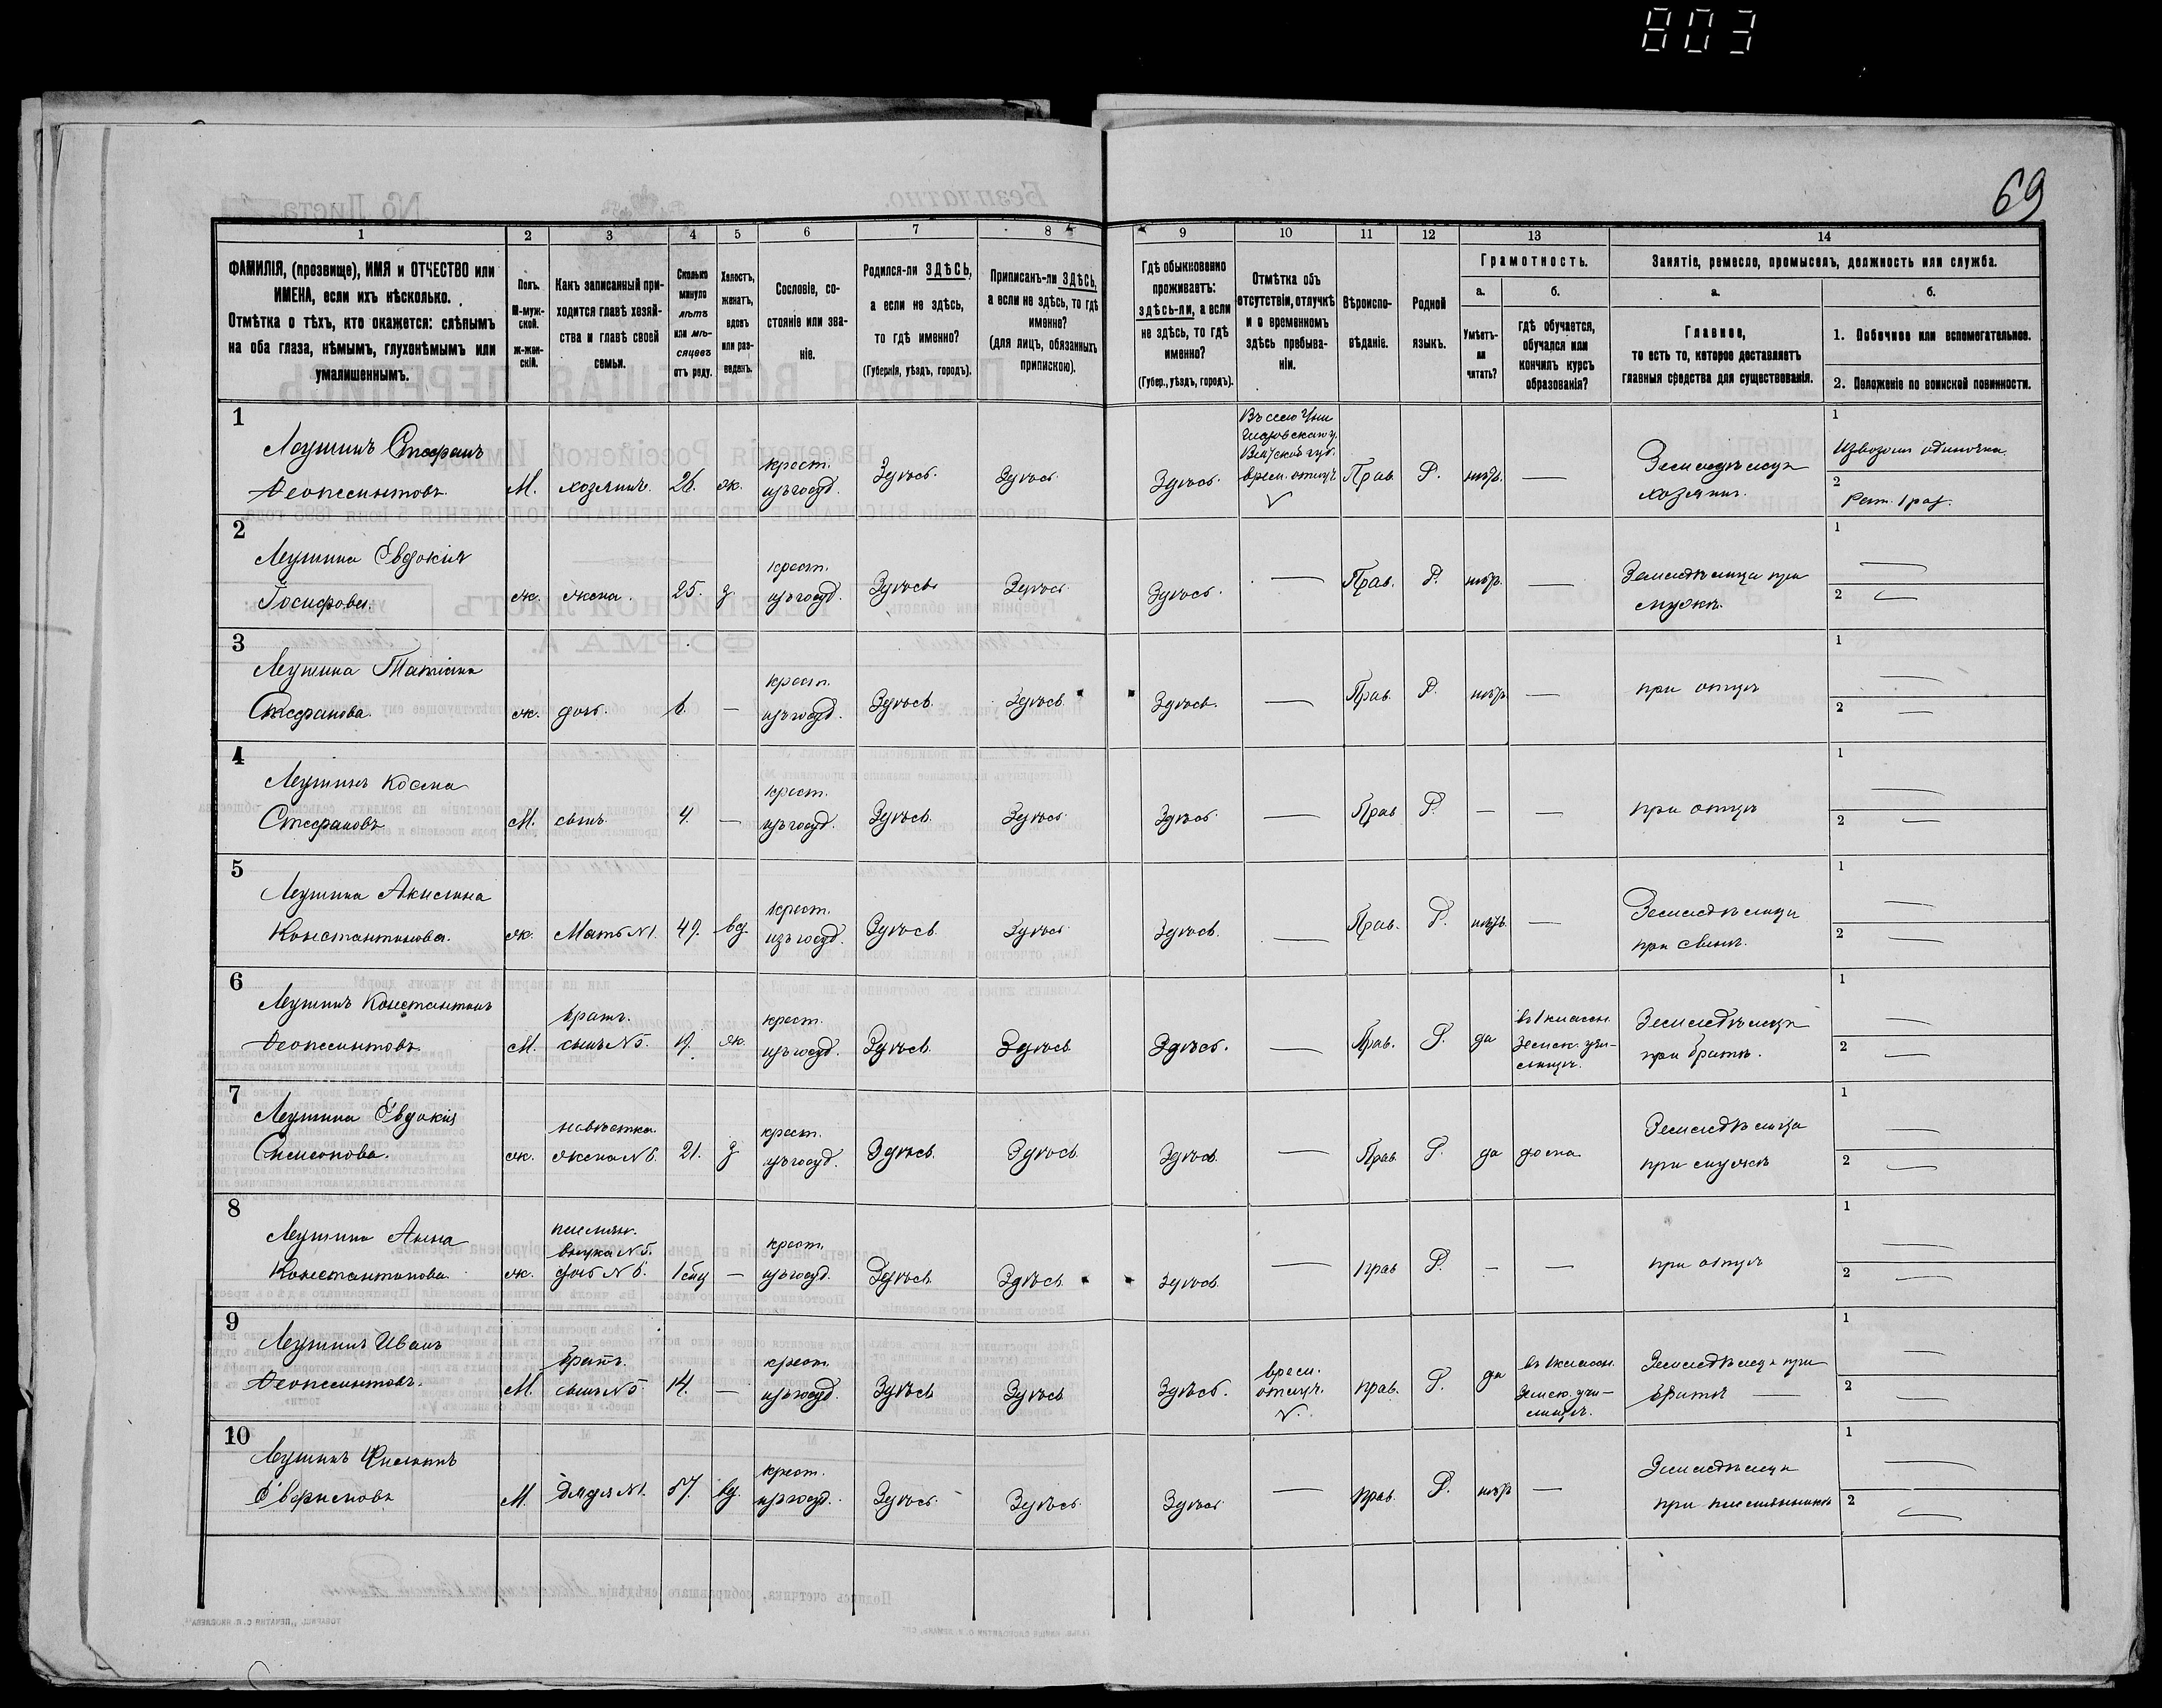 803
69
1
2
3
4
5
6
7
8
9
10
11
12
13
14
ФАМИЛІЯ, (прозвище), ИМЯ и ОТЧЕСТВО или
ИМЕНА, если ихъ нѣсколько.
Отмѣтка о тѣхъ, кто окажется: слѣпымъ
на оба глаза, нѣмымъ, глухонѣмымъ или
умалишеннымъ.
Полъ.
М-муж-
ской.
ж-жен-
скій.
Какъ записанный при-
ходится главѣ хозяй-
ства и главѣ своей
семьи.
Сколько
минуло
лѣтъ
или мѣ-
сяцевъ
отъ роду.
Холостъ,
женатъ,
вдовъ
или раз-
веденъ.
Сословіе, со-
стояніе или зва-
ніе.
Родился-ли ЗДѢСЬ,
а если не здѣсь,
то гдѣ именно?
(Губернія, уѣздъ, городъ).
Приписанъ-ли ЗДѢСЬ,
а если не здѣсь, то гдѣ
именно?
(для лицъ, обязанныхъ
припискою).
Гдѣ обыкновенно
проживаетъ:
здѣсь-ли, а если
не здѣсь, то гдѣ
именно?
(Губер., уѣздъ, городъ).
Отмѣтка объ
отсутствіи, отлучкѣ
и о временномъ
здѣсь пребыва-
ніи.
Вѣроиспо-
вѣданіе.
Родной
языкъ.
Грамотность.
а.
Умѣетъ-
ли
читать?
б.
гдѣ обучается,
обучался или
кончилъ курсъ
образованія?
Занятіе, ремесло, промыселъ, должность или служба.
а.
Главное,
то есть то, которое доставляетъ
главныя средства для существованія.
б.
1. Побочное или вспомогательное.
2. Положеніе по воинской повинности.
1
Леушинъ Стефанъ
Феопемптовъ.
М.
хозяинъ.
26.
ж.
крест.
изъ госуд.
Здѣсь.
Здѣсь
Здѣсь.
Въ село
Глазовскаго у.
Вятской губ.
врем. отлуч.
Прав.
Р.
нѣтъ.
—
Земледѣлецъ
хозяинъ.
1
Извозомъ одиночка
2
Рат. 1 раз.
2
Леушина Евдокія
Іосифова.
ж.
жена.
25.
з.
крест.
изъ госуд.
Здѣсь
Здѣсь
Здѣсь.
—
Прав.
Р.
нѣтъ.
—
Земледѣлица при
мужѣ.
1
—
2
—
3
Леушина Татіана
Стефанова.
ж.
дочь.
6.
—
крест.
изъ госуд.
Здѣсь.
Здѣсь
Здѣсь.
—
Прав.
Р.
нѣтъ
—
при отцѣ
1
—
2
—
4
Леушинъ Косма
Стефановъ
М.
сынъ.
4.
—
крест.
изъ госуд.
Здѣсь.
Здѣсь
Здѣсь.
—
Прав
Р.
—
—
при отцѣ
1
—
2
—
5
Леушина Акилина
Константинова.
ж.
Мать №1.
49.
вд.
крест.
изъ госуд.
Здѣсь
Здѣсь
Здѣсь.
—
Прав.
Р.
нѣтъ.
—
Земледѣлица
при сынѣ.
1
—
2
—
6
Леушинъ Константинъ
Феопемптовъ
М.
братъ.
сынъ №5.
ж.
крест.
изъ госуд.
Здѣсь.
Здѣсь
Здѣсь.
—
Прав.
Р.
да
въ 1 классн.
Земск. учи-
лищѣ.
Земледѣлецъ
при братѣ.
1
—
2
—
7
Леушина Евдокія
Симеонова.
ж.
невѣстка
жена №6.
21.
з
крест.
изъ госуд.
Здѣсь
Здѣсь
Здѣсь.
—
Прав.
Р.
да
дома
Земледѣлица
при мужѣ
1
—
2
—
8
Леушина Анна
Константинова
ж.
племян.
внука №5.
дочь №6.
—
крест.
изъ госуд.
Здѣсь
Здѣсь
Здѣсь
—
прав
Р.
—
—
при отцѣ
1
—
2
—
9
Леушинъ Иванъ
Феопемптовъ.
М.
братъ.
сынъ №5
14.
—
крест.
изъ госуд.
Здѣсь
Здѣсь
Здѣсь.
врем.
отлуч.
прав.
Р.
да
въ 1 классн.
Земск. учи-
лищѣ.
Земледѣлецъ при
братѣ —
1
—
2
—
10
Леушинъ Филиппъ
Ефремовъ
М.
дядя №1.
57.
вд.
крест.
изъ госуд.
Здѣсь
Здѣсь
Здѣсь
—
прав.
Р.
нѣтъ
—
Земледѣлецъ
при племянникѣ
1
—
2
—